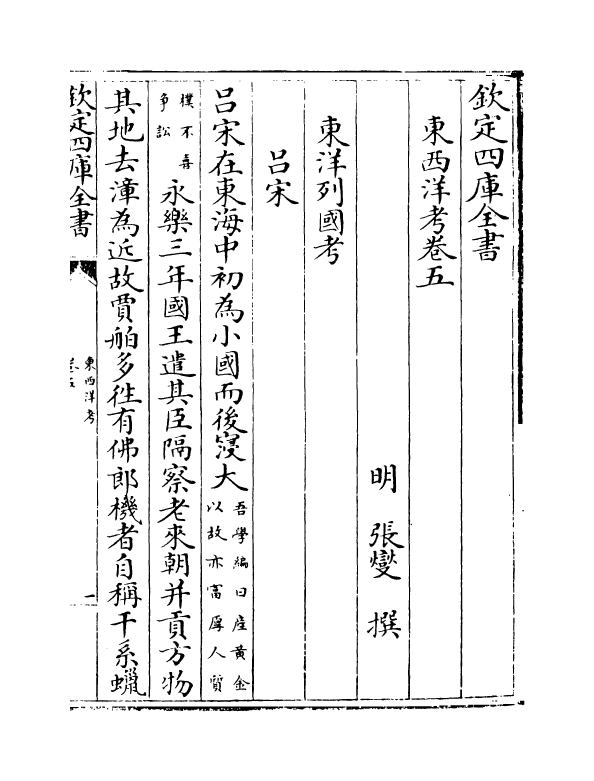 欽定四庫全書
東西洋考卷五
明 張燮 撰
東洋列國考
呂宋
呂宋在東海中初為小國而後寖大吾學編曰産黄金以故亦富厚人質
樸不喜争訟永樂三年國王遣其臣隔察老來朝并貢方物
其地去漳為近故賈舶多徃有佛郎機者自稱干系蠟
欽定四庫全書
東西洋考
卷五
一